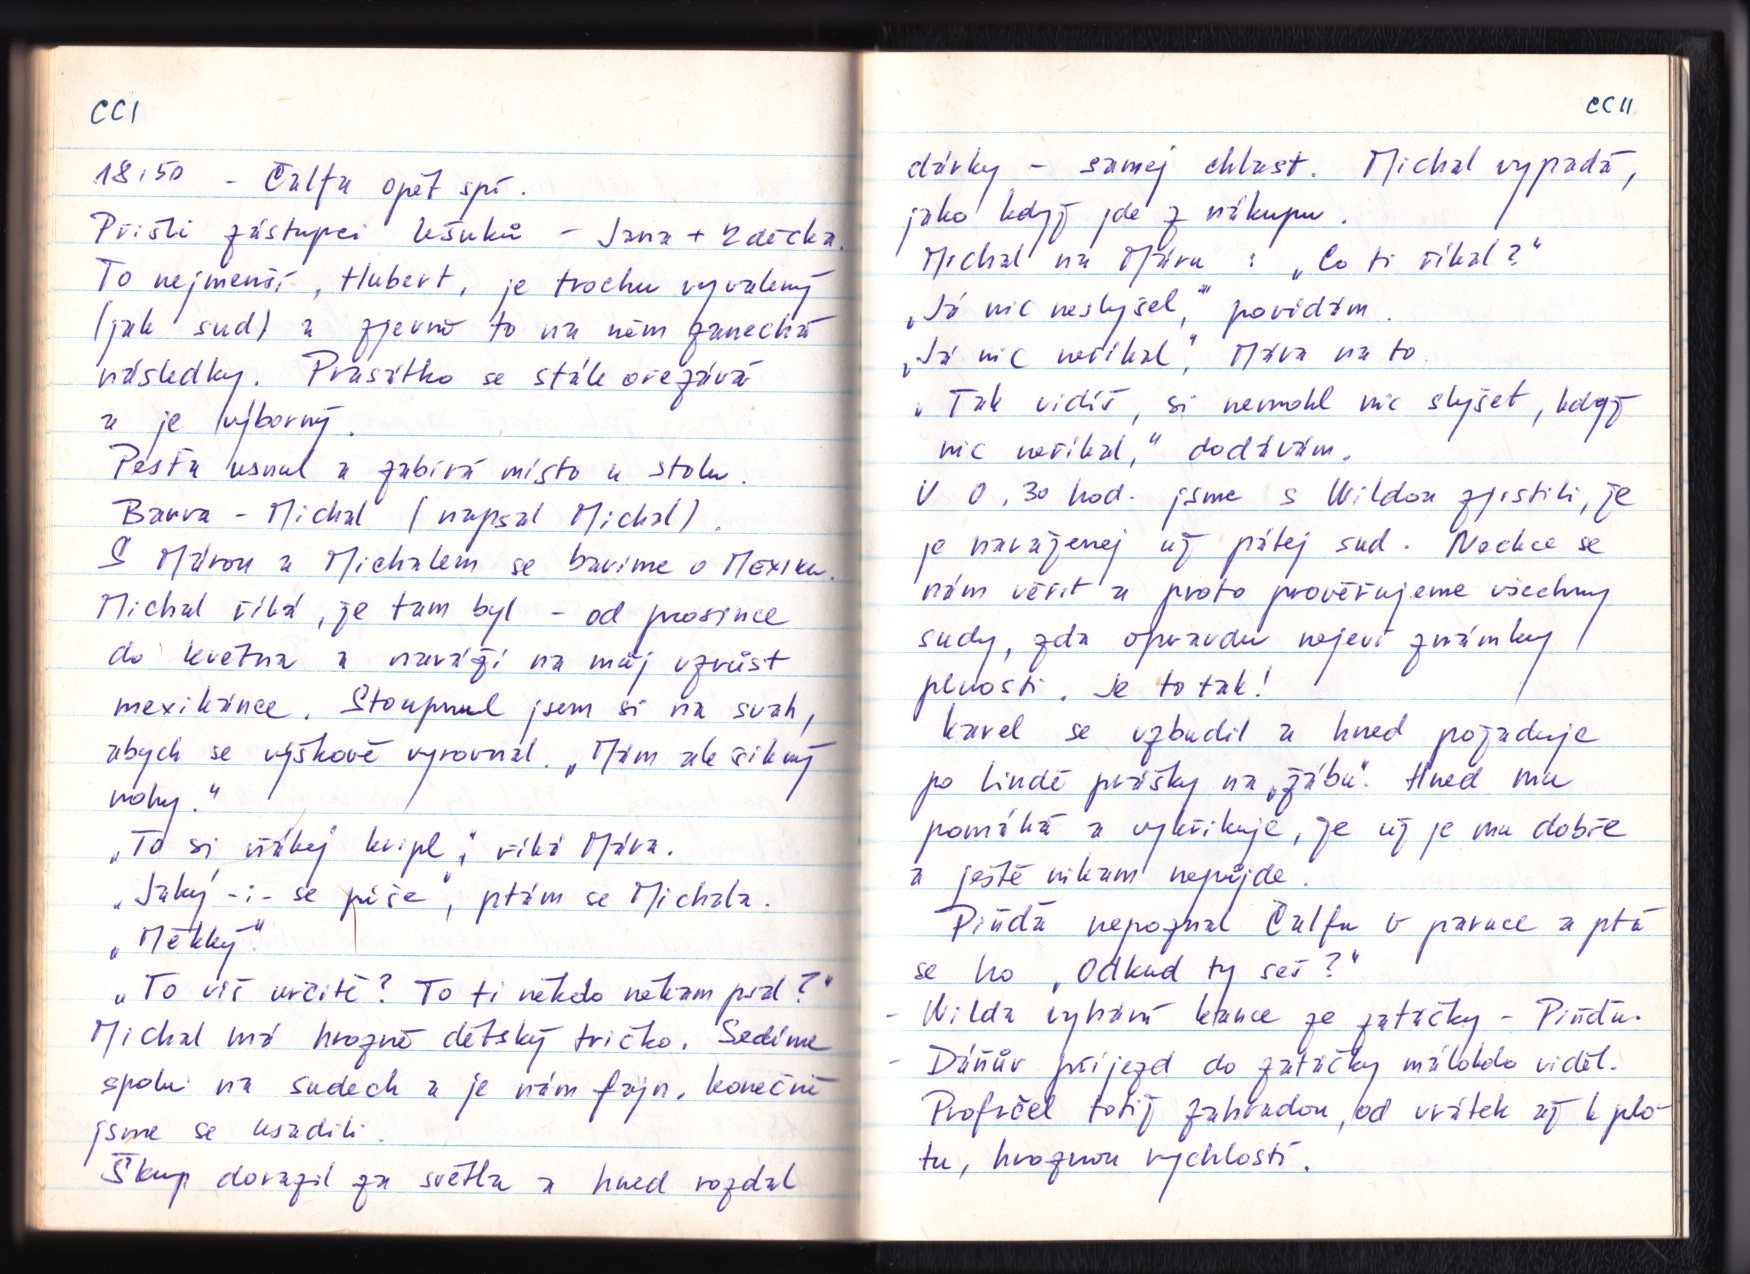 CCI
18:50 - Čalfa opět spí.
Přišli zástupci Ušuků - Jana + 2 děcka.
To nejmenší, Hubert, je trochu vyvalený
(jak sud) a zjevně to na něm zanechá
následky. Prasátko se stále ořezává
a je výborný.
Pešťa usnul a zabírá místo u stolu.
Barva - Michal (napsal Michal).
S Márou a Michalem se bavíme o Mexiku.
Michal říká, že tam byl - od prosince
do května a naráží na můj vzrůst
mexikánce. Stoupnul jsem si na svah,
abych se výškově vyrovnal. „Mám ale šikmý
nohy."
„To si ňákej kripl", říká Mára.
„Jaký -i- se píše", ptám se Michala.
„Měkký."
„To víš určitě? To ti někdo někam psal?"
Michal má hrozně dětský tričko. Sedíme
spolu na sudech a je nám fajn. konečně
jsme se usadili.
Škup dorazil za světla a hned rozdal
CCII
dávky - samej chlast. Michal vypadá,
jako když jde z nákupu.
Michal na Máru : „Co ti říkal?"
„Já nic neslyšel," povídám.
„Já nic neříkal", Mára na to.
„Tak vidíš, si nemohl nic slyšet, když
nic neříkal," dodávám.
V 0.30 hod. jsme s Wildou zjistili, že
je naraženej už pátej sud. Nechce se
nám věřit a proto prověřujeme všechny
sudy, zda opravdu nejeví známky
plnosti. Je to tak!
Karel se vzbudil a hned požaduje
po Lindě prášky na „žábu". Hned mu
pomáhá a vykřikuje, že už je mu dobře
a ještě nikam nepůjde.
Piňďa nepoznal Čalfu v paruce a ptá
se ho „Odkud ty seš?"
- Wilda vyhání kance ze zatáčky - Piňďu.
- Dáňův příjezd do zatáčky málokdo viděl.
Profrčel totiž zahradou, od vrátek až k plo-
tu, hroznou rychlostí.